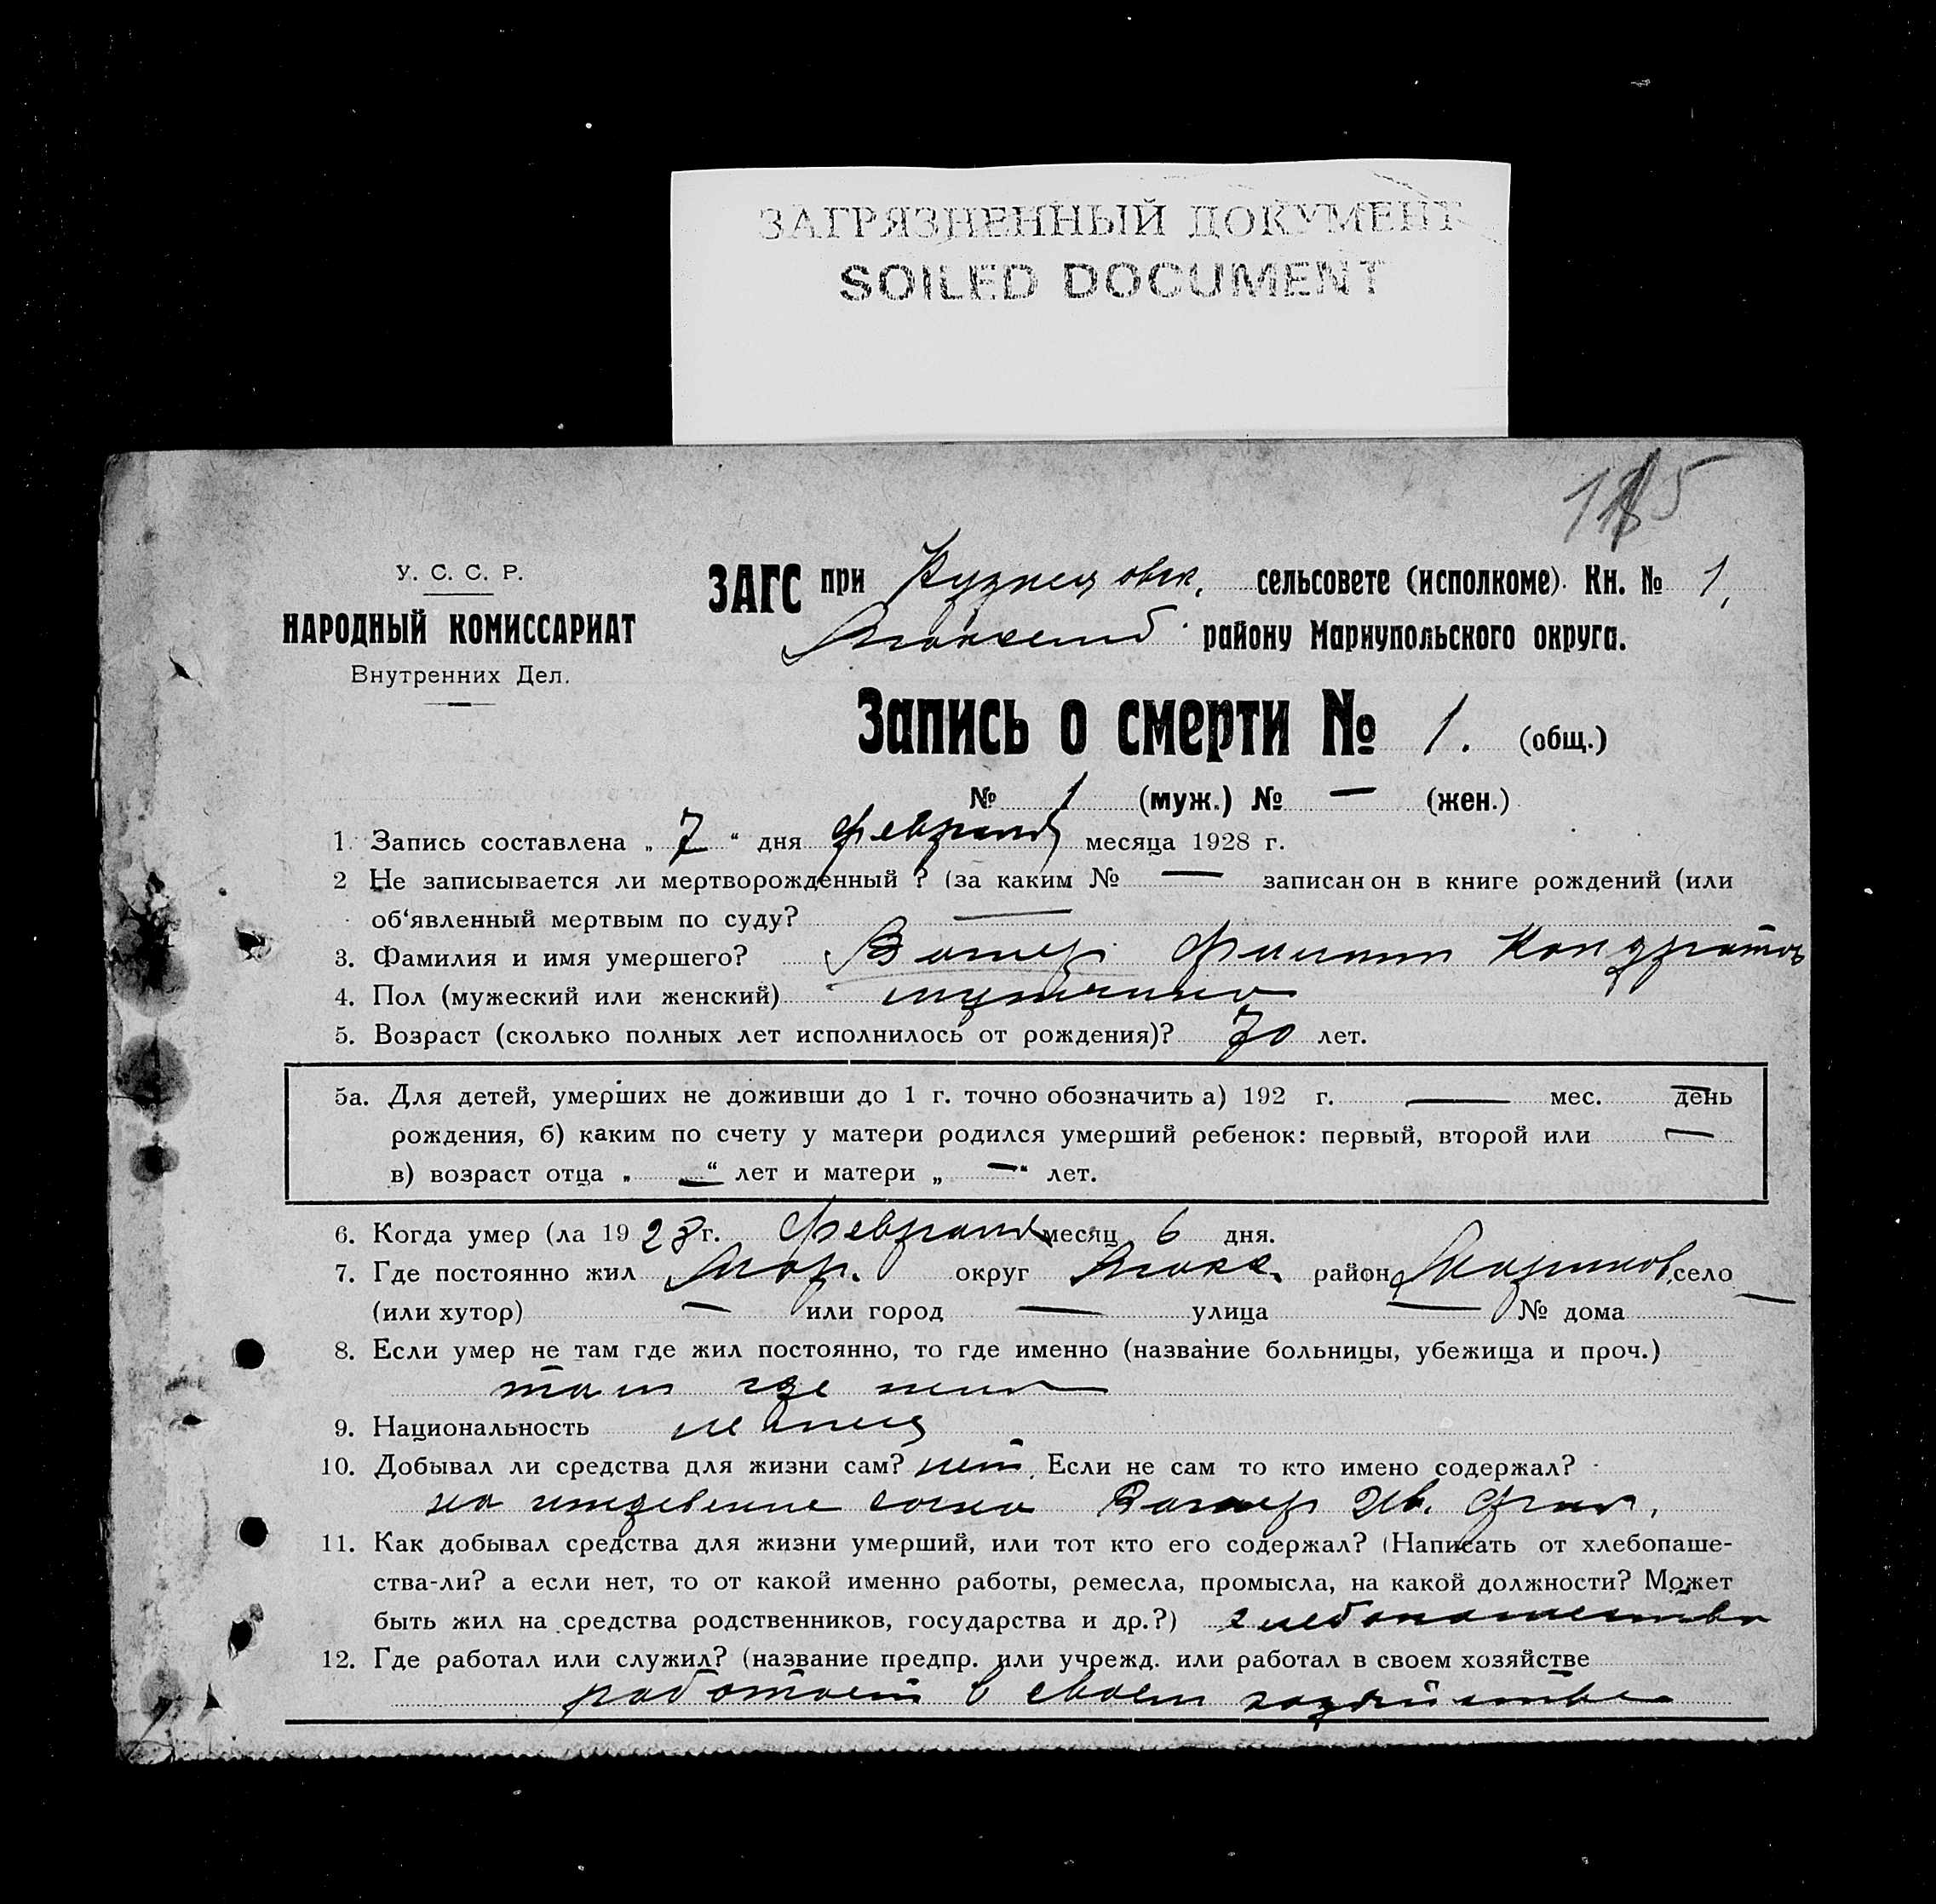 ЗАГРЯЗНЕННЫЙ ДОКУМЕНТ
SOILED DOCUMENT
У. С. С. Р.
НАРОДНЫЙ КОМИССАРИАТ
Внутренних Дел.
ЗАГС при Кузнецовск. сельсовете (исполкоме). Кн. № 1,
району Мариупольского округа.
Запись о смерти № 1. (общ.)
№ 1 (муж.) № — (жен.)
1. Запись составлена „ 7 “ дня февраля месяца 1928 г.
2 Не записывается ли мертворожденный ? (за каким № — записан он в книге рождений (или
об‘явленный мертвым по суду? —
3. Фамилия и имя умершего? Филипп Кондратов
4. Пол (мужеский или женский) мужчина
5. Возраст (сколько полных лет исполнилось от рождения)? 70 лет.
5а. Для детей, умерших не доживши до 1 г. точно обозначить а) 192 г. — мес. — день
рождения, б) каким по счету у матери родился умерший ребенок: первый, второй или —
в) возраст отца „ — “ лет и матери „ — “ лет.
6. Когда умер (ла 1928 г. февраля месяц 6 дня.
7. Где постоянно жил Мар. округ район село —
(или хутор) — или город — улица — № дома
8. Если умер не там где жил постоянно, то где именно (название больницы, убежища и проч.)
там где жил
9. Национальность немец
10. Добывал ли средства для жизни сам? нет. Если не сам то кто имено содержал?
на иждевение сына Ив. Фил.
11. Как добывал средства для жизни умерший, или тот кто его содержал? (Написать от хлебопаше-
ства-ли? а если нет, то от какой именно работы, ремесла, промысла, на какой должности? Может
быть жил на средства родственников, государства и др.?) хлебопашество
12. Где работал или служил? (название предпр. или учрежд. или работал в своем хозяйстве
работает в своем хозяйстве